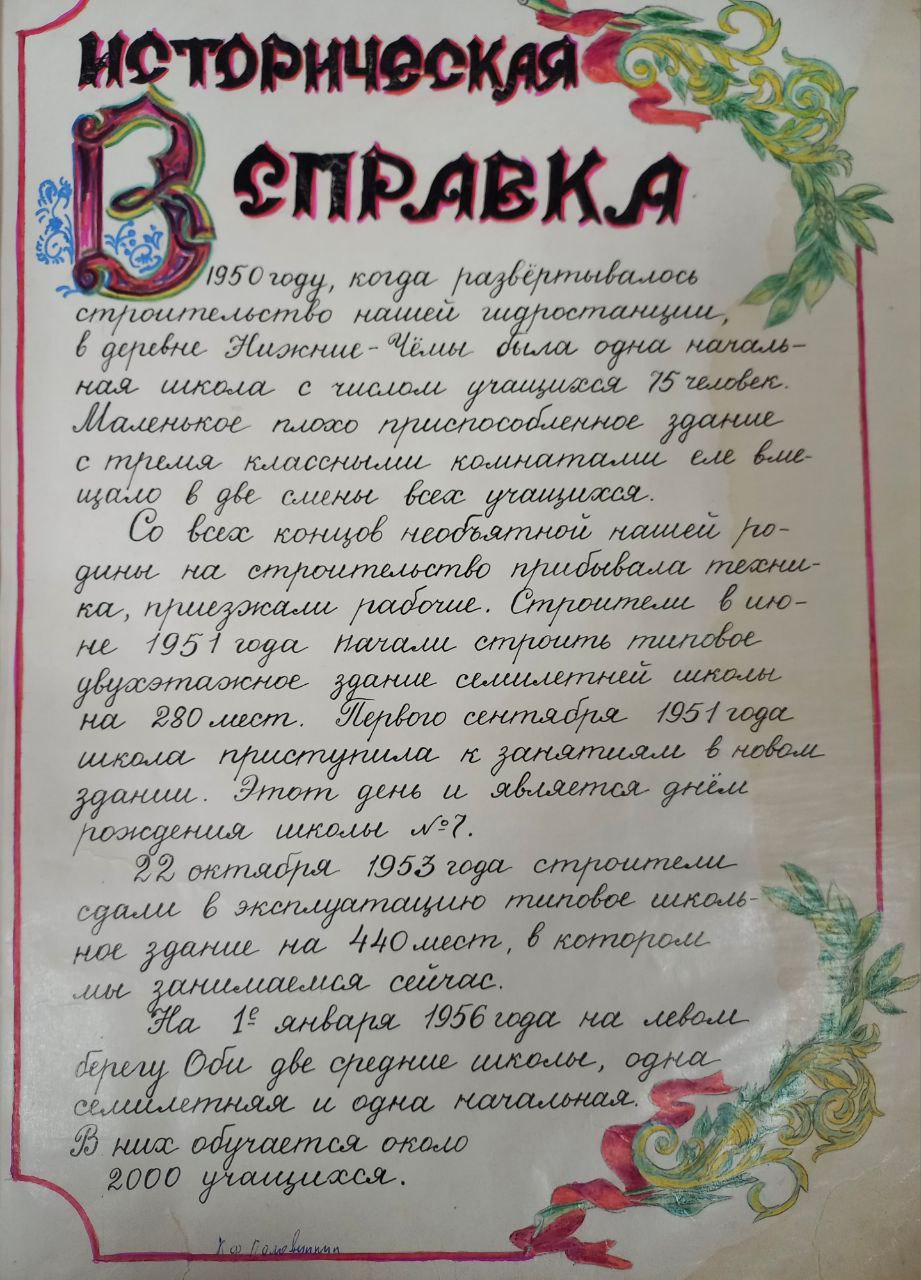 ИСТОРИЧЕСКАЯ
СПРАВКА
В 1950 году, когда развёртывалось
строительство нашей гидростанции,
в деревне Нижние-Чёмы была одна началь-
ная школа с числом учащихся 75 человек.
Маленькое плохо приспособленное здание
с тремя классными комнатами еле вме-
щало в две смены всех учащихся.
Со всех концов необъятной нашей ро-
дины на строительство прибывала техни-
ка, приезжали рабочие. Строители в ию-
не 1951 года начали строить типовое
двухэтажное здание семилетней школы
на 280 мест. Первого сентября 1951 года
школа приступила к занятиям в новом
здании. Этот день и является днём
рождения школы №7.
22 октября 1953 года строители
сдали в эксплуатацию типовое школь-
ное здание на 440 мест, в котором
мы занимаемся сейчас.
На 1е января 1956 года на левом
берегу Оби две средние школы, одна
семилетняя и одна начальная.
В них обучается около
2000 учащихся.